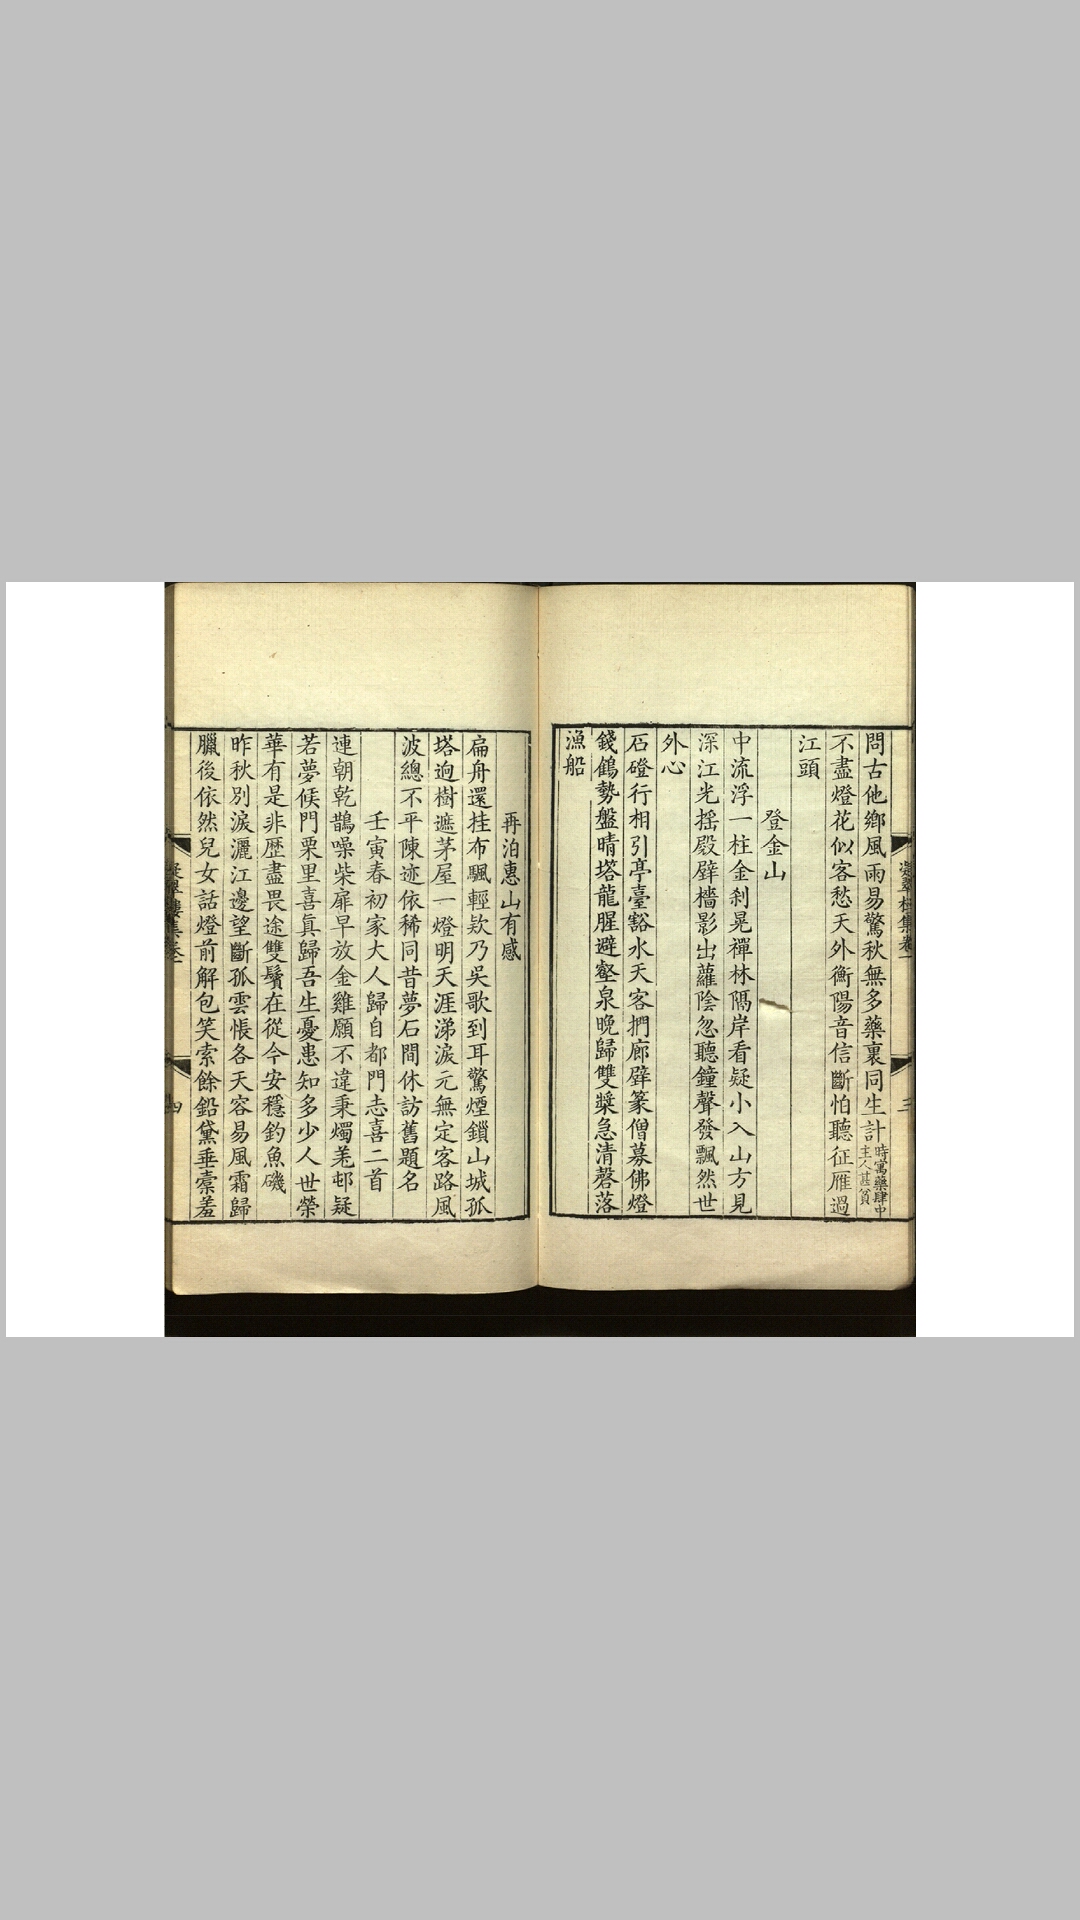 問古他鄉風雨易驚秋無多藥裹同生計時寓藥肆中主人甚貧
不盡燈花似客愁天外衡陽音信斷怕聽征雁過
江頭
登金山
中流浮一柱金刹晃禪林隔岸看疑小入山方見
深江光搖殿壁檣影出蘿陰忽聽鐘聲發飄然世
外心
石磴行相引亭臺豁水天客捫廊壁篆僧募佛燈
錢鶴勢盤晴塔龍腥避壑泉晚歸雙槳急清磬落
漁船
凝翠樓集卷一
三
再泊惠山有感
扁舟還挂布颿輕欵乃吳歌到耳驚煙鎖山城孤
塔逈樹遮茅屋一燈明天涯涕淚元無定客路風
波總不平陳迹依稀同昔夢石間休訪舊題名
壬寅春初家大人歸自都門志喜二首
連朝乾鵲噪柴扉早放金雞願不違秉燭羌邨疑
若夢候門栗里喜眞歸吾生憂患知多少人世榮
華有是非歷盡畏途雙鬢在從今安穩釣魚磯
昨秋別淚灑江邊望斷孤雲悵各天容易風霜歸
臘後依然兒女話燈前解包笑索餘鉛黛垂橐羞
凝翠樓集卷一
四